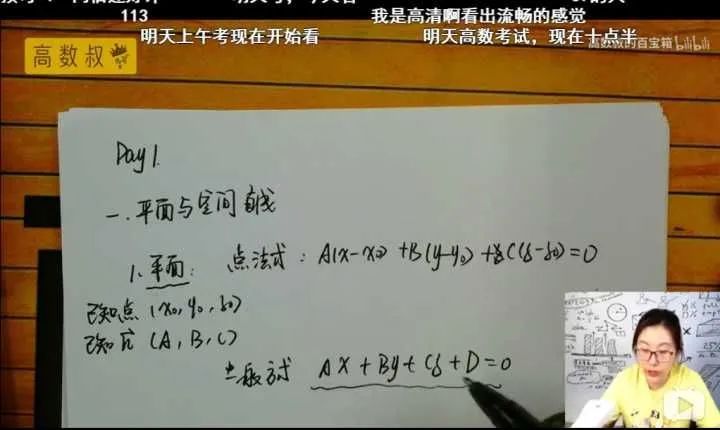 113
我是高清啊看出流畅的感觉
明天上午考现在开始看
明天高数考试，现在十点半
高数叔
高数叔的百宝箱 bilibili
Day 1.
一.平面与空间直线
1.平面: 点法式: A(x-x₀) +B(y-y₀) +C(z-z₀)=0
已知点 (x₀, y₀, z₀)
已知n⃗ (A, B, C)
一般式 Ax+By+Cz+D=0